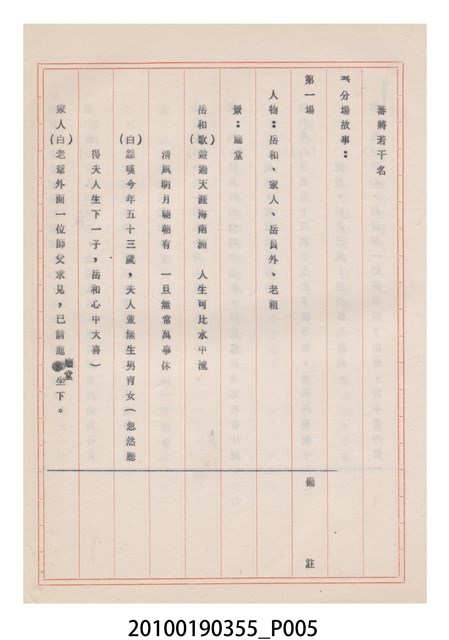 蕃將若干名
分場故事：
第一場
備註
人物：岳和、家人、岳員外、老祖
景：廳堂
岳和(歌)遊過天涯海南洲　人生可比水中流
清風明月朝朝有　一旦無常萬事休
(白)怨嘆今年五十三歲，夫人並無生男育女(忽然聽
得夫人生下一子，岳和心中大喜)
家人(白)老爺外面一位師父求見，已請進廳堂坐下。
20100190355_P005